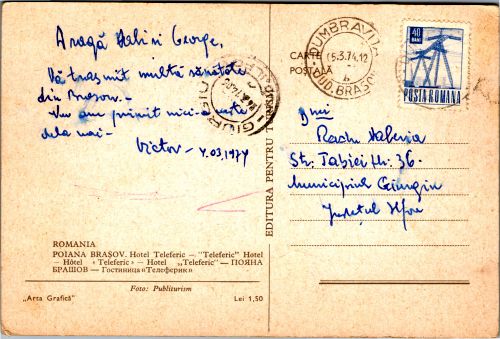 Dragă Gabi și George,
Vă trasmit multă sănătate
din Brașov.-
Nu am primit nici-o veste
dela voi-
Victor - 4.03.1974
ROMANIA
POIANA BRAȘOV. Hotel Teleferic — "Teleferic" Hotel
— Hôtel « Teleferic » — Hotel „Teleferic" — ПОЯНА
БРАШОВ — Гостиница «Телеферик»
Foto: Publiturism
„Arta Grafică"
Lei 1,50
EDITURA PENTRU TURISM
CARTE
POȘTALĂ
DUMBRĂVIȚA
15.3.74.12
JUD. BRAȘOV
GIURGIU
40
BANI
POSTA ROMANA
Radu
Str. Tabiei Nr. 36-
Municipiul Giurgiu
Județul Ilfov